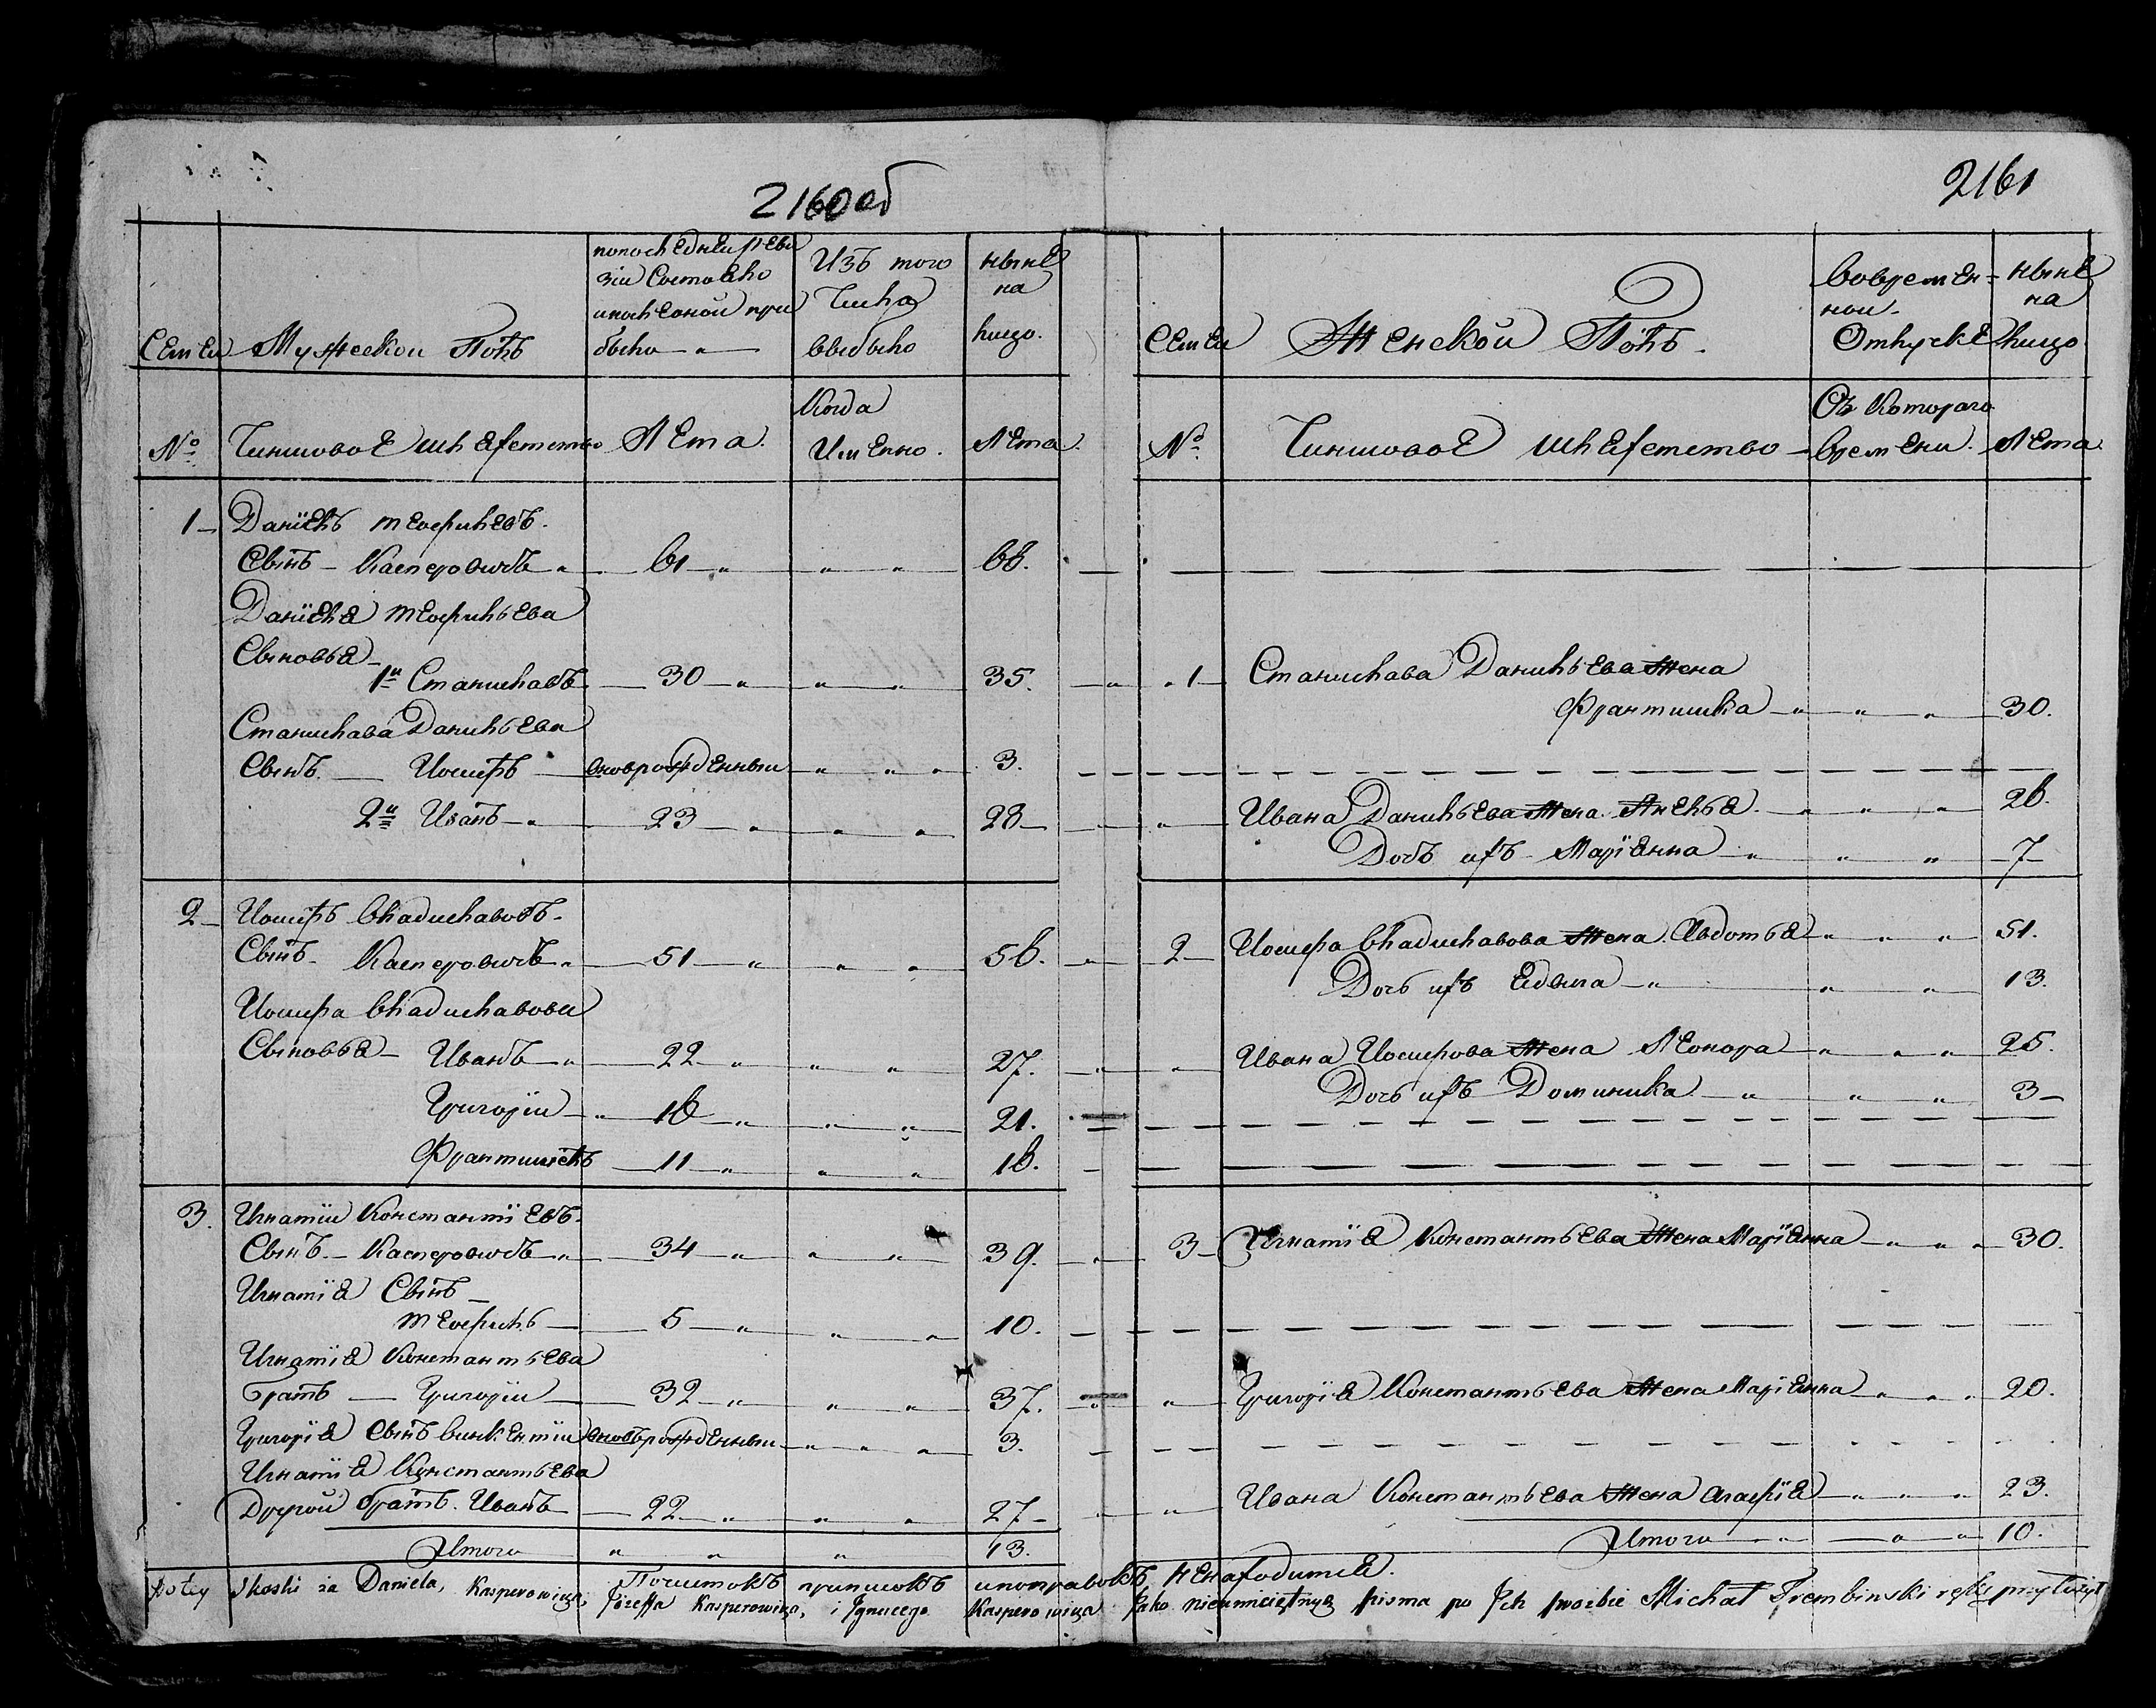 2160об
2161
Семьи
Мужескои Полъ
попоследнеи реви
зіи Состояло
ипоследнои при
было
Изъ того
Числа
выбыло
ныне
на
лицо.
№
Чиншовое шляхетство
Лета.
Когда
Именно.
Лета.
1 Даніель теофилевъ.
Сынъ Касперовичъ 61 66.
Даніеля теофильева
Сыновья
1й Станиславъ 30 35.
Станислава Данильева
Сынъ. Иосифъ вноврожденныи 3.
2й Иванъ 23 28
2 Иосифъ владиславовъ.
Сынъ Касперовичъ 51 56.
Иосифа владиславова
Сыновья Иванъ 22 27.
Григоріи 16 21.
Францишекъ 11 16.
3. Игнатіи Константіевъ.
Сынъ. Касперовичъ 34 39.
Игнатія Сынъ
теофилъ 5 10.
Игнатія Константьева
братъ Григоріи 32 37.
Григорія Сынъ винкентіи вновьрожденныи 3.
Игнатія Константьева
Другой братъ. Иванъ 22 27
Итого 13.
Семьи
Женской Полъ.
вовремен-
нои
Отлуске
ныне
на
лицо
№
Чиншовое шляхетство
Съ Котораго
времени.
Лета.
1 Станислава Данильева Жена
Францишка 30.
Ивана Данильева Жена Анелья. 26.
Дочь ихъ Маріянна 7
2 Иосифа владиславова Жена Авдотья 51.
Дочь ихъ Едвига 13.
Ивана Иосифова Жена Леонора 25.
Дочь ихъ Доминика 3
3 Игнатія Константьева Жена Маріянна 30.
Григорія Константьева Жена Маріянна 20.
Ивана Константьева Жена агафія 23.
Итого 10.
Почистокъ приписокъ ипоправокъ ненаходится.
za Daniela, Kasperowicza, Józeffa Kasperowicza, i Ignacego Kasperowicza Jako nieumieiętnych pisma po Ich proźbie Michał Trembinski rękę przyłożył